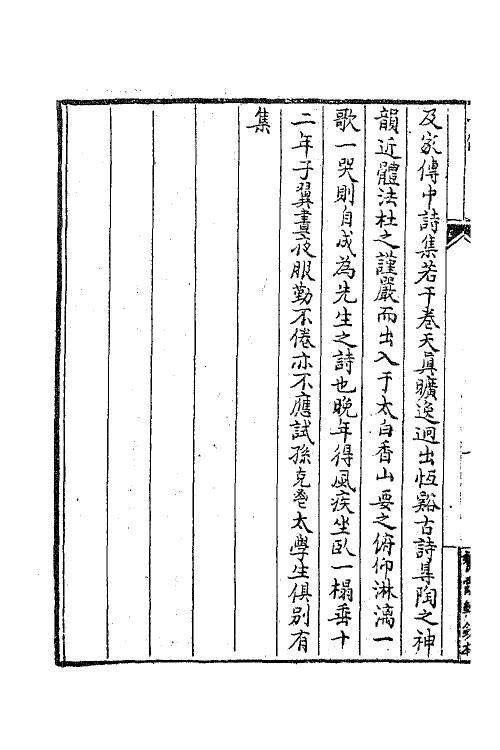 及家傳中詩集若干卷天真曠逸迥出恆谿古詩得陶之神
韻近體法杜之謹嚴而出入于太白香山要之俯仰淋漓一
歌一哭則自成為先生之詩也晚年得風疾坐臥一榻垂十
二年子翼晝夜服勤不倦亦不應試孫克太學生俱別有
集